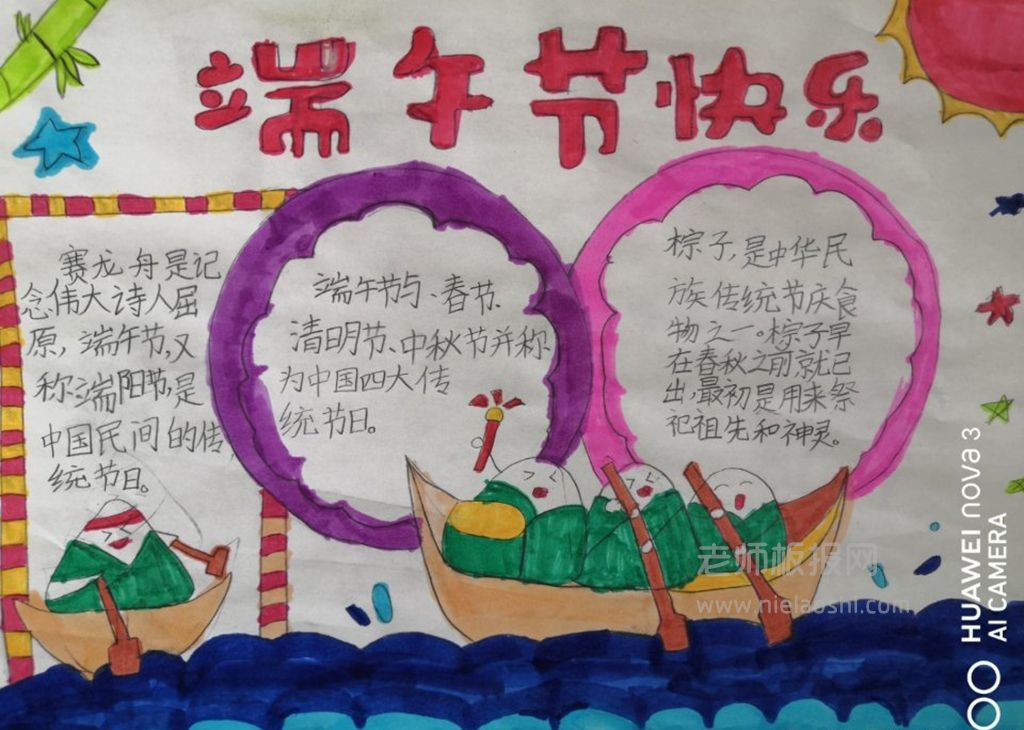 端午节快乐
赛龙舟是记
念伟大诗人屈
原，端午节，又
称端阳节，是
中国民间的传
统节日。
端午节与、春节、
清明节、中秋节并称
为中国四大传
统节日。
粽子，是中华民
族传统节庆食
物之一。粽子早
在春秋之前就已
出，最初是用来祭
祀祖先和神灵。
老师板报网
www.nielaoshi.com
HUAWEI nova 3
AI CAMERA